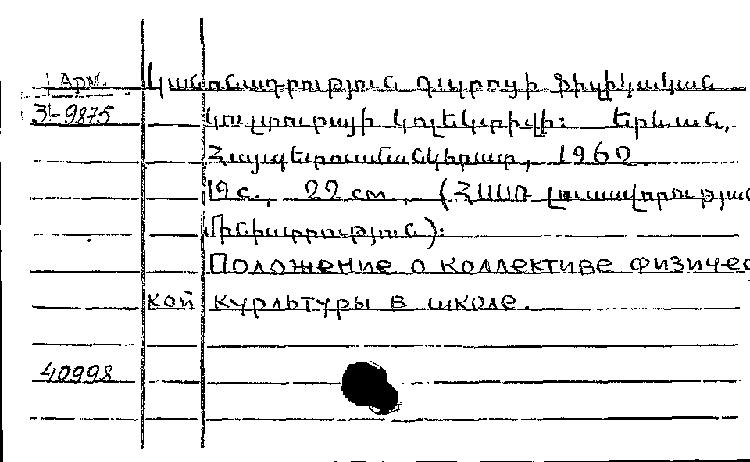 Арм. Կանոնադրություն դպրոցի ֆիզիկական
31-9875 կուլտուրայի կոլեկտիվի։ Երևան,
Հայպետուսմանկհրատ, 1960.
12 с., 22 см, (ՀՍՍՌ լուսավորության
մինիստրություն)։
Положение о коллективе физичес
кой курльтуры в школе.
40998